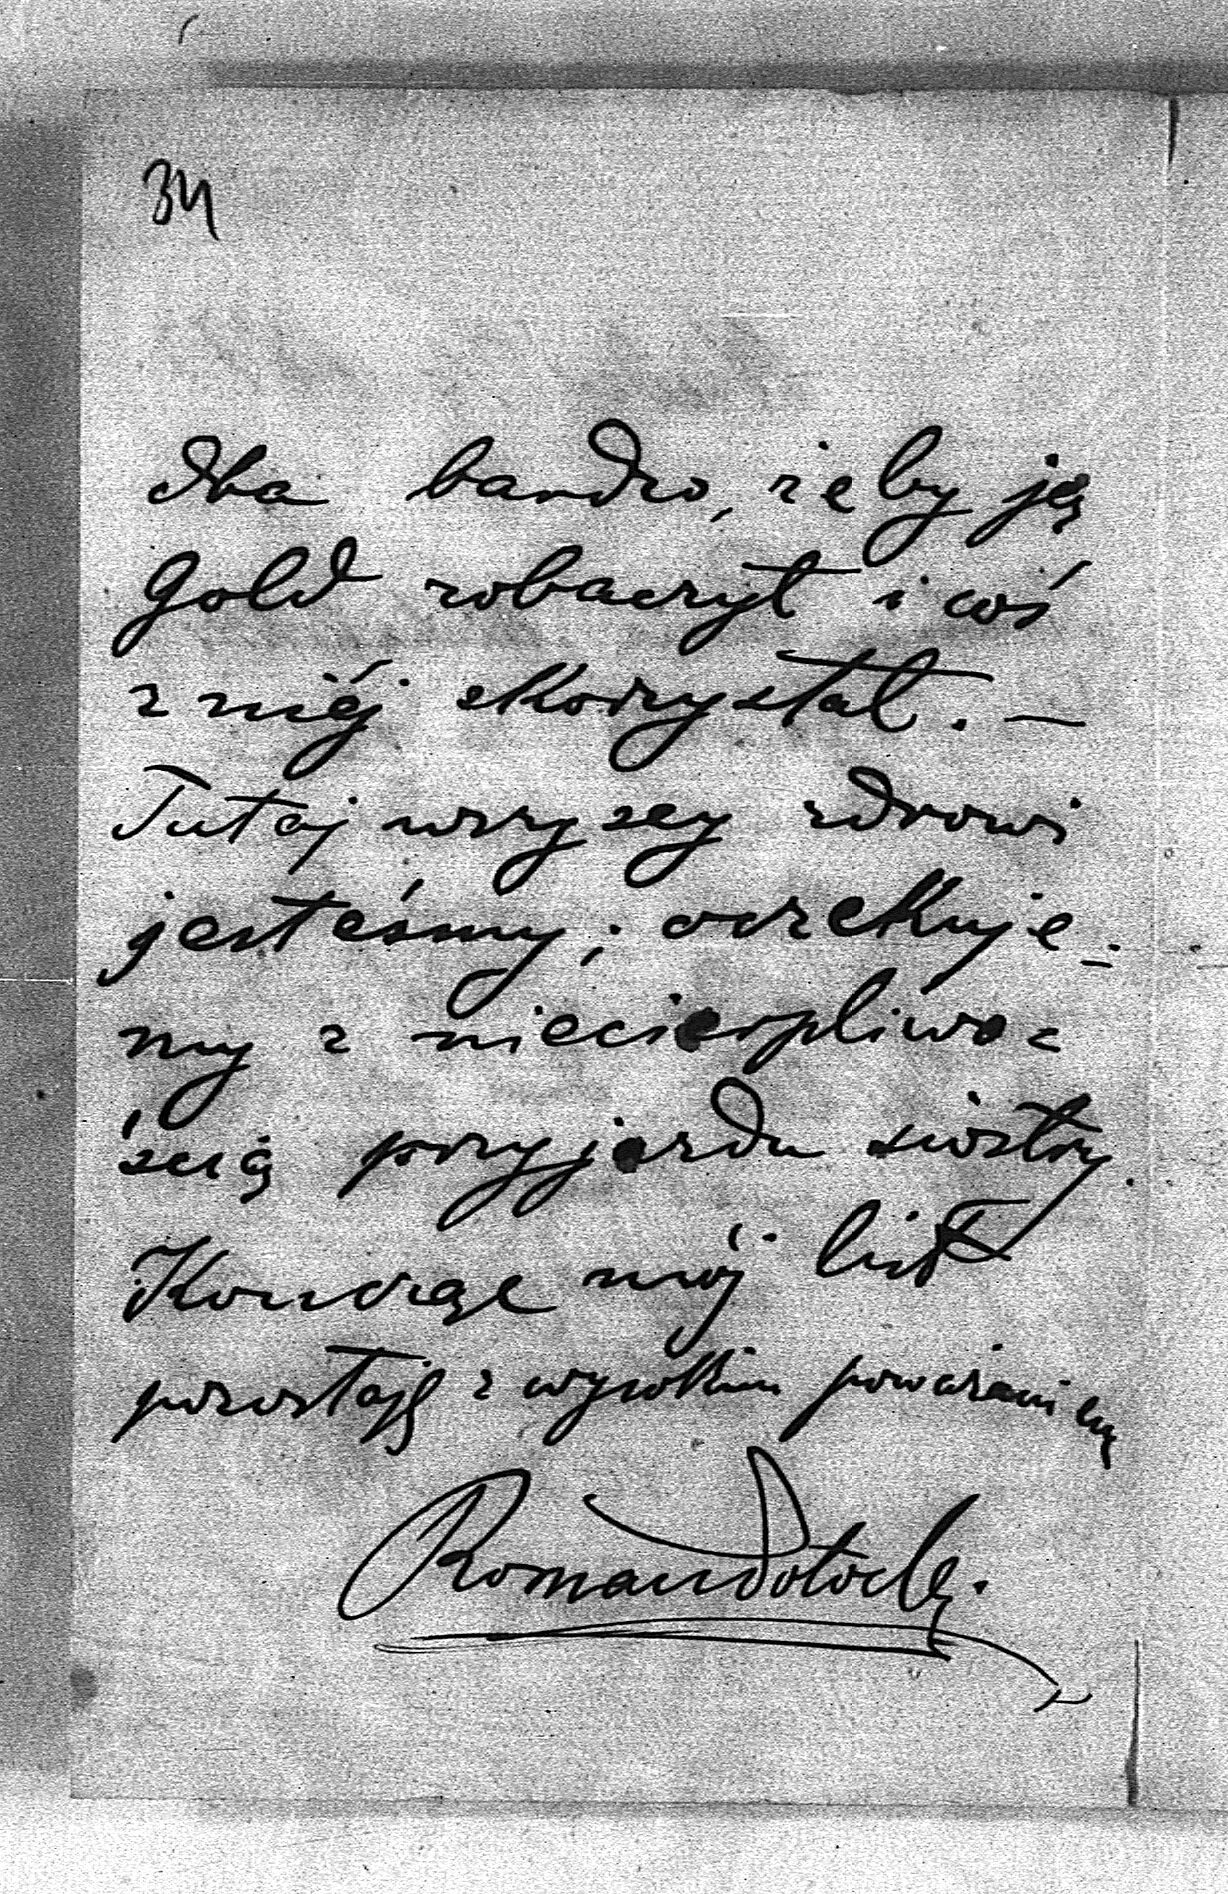 34
dba bardzo, żeby ję
Gold zobaczył i coś
z niéj skorzystał. —
Tutaj wszyscy zdrowi
jesteśmy; oczekuje-
my z niecierpliwo=
ścią przyjazdu siostry.
Kończąc mój list
pozostaję z wysokim poważaniem
Roman Potocki.